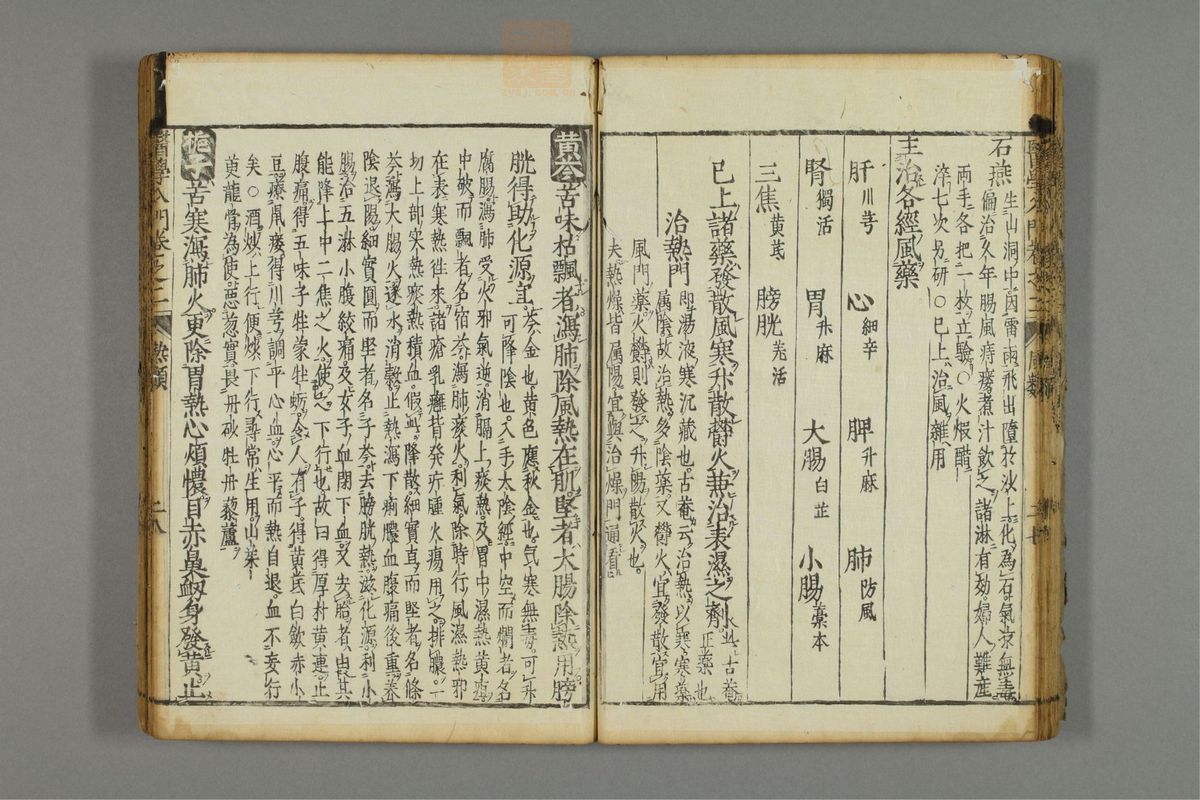 石燕生山洞中因雷雨飛出墮於沙上化為石氣涼無毒
偏治久年腸風痔瘻煮汁飲之諸淋有効婦人難産
兩手各把一枚立驗○火煆醋
淬七次另研○已上治風雜用
主治各經風藥
肝川芎 心細辛 脾升麻 肺防風
腎獨活 胃升麻 大腸白芷 小腸藁本
三焦黄芪 膀胱羌活
已上諸藥發散風寒升散鬱火兼治表濕之劑此古菴
正藥也
治熱門即湯液寒沉藏也古菴云治熱以寒寒藥
属陰故治熱多陰藥又鬱火宜發散宜用
風門藥火鬱則發之升陽散火也
夫熱燥皆属陽宜與治燥門通看
醫學入門卷之二 熱類 二八
黄芩苦味枯飄者瀉肺除風熱在肌堅者大腸除熱用膀
胱得助化源宜芩金也黄色應秋金也氣寒無毒可升
可降陰也入手太陰經中空而爛者名
腐腸瀉肺受火邪氣逆消膈上痰熱及胃中濕熱黄疸
中破而飄者名宿芩瀉肺痰火利氣除時行風濕熱邪
在表寒熱往來諸瘡乳癰背發疔腫火瘍用之排膿一
切上部實熱瘀熱積血假此降散細實直而堅者名條
芩瀉大腸火逐水消穀止熱瀉下痢膿血腹痛後重養
陰退陽細實圓而堅者名子芩去膀胱熱滋化源利小
腸治五淋小腹絞痛及女子血閉下血又安胎者由其
能降上中二焦之火使之下行也故曰得厚朴黄連止
腹痛得五味子牡蒙牡蛎令人有子得黄芪白斂赤小
豆療鼠瘻得川芎調平心血心平而熱自退血不妄行
矣○酒炒上行便炒下行尋常生用山茱
萸龍骨為使惡葱實畏丹砂牡丹藜蘆
梔子苦寒瀉肺火更除胃熱心煩懷目赤鼻衂身發黄止